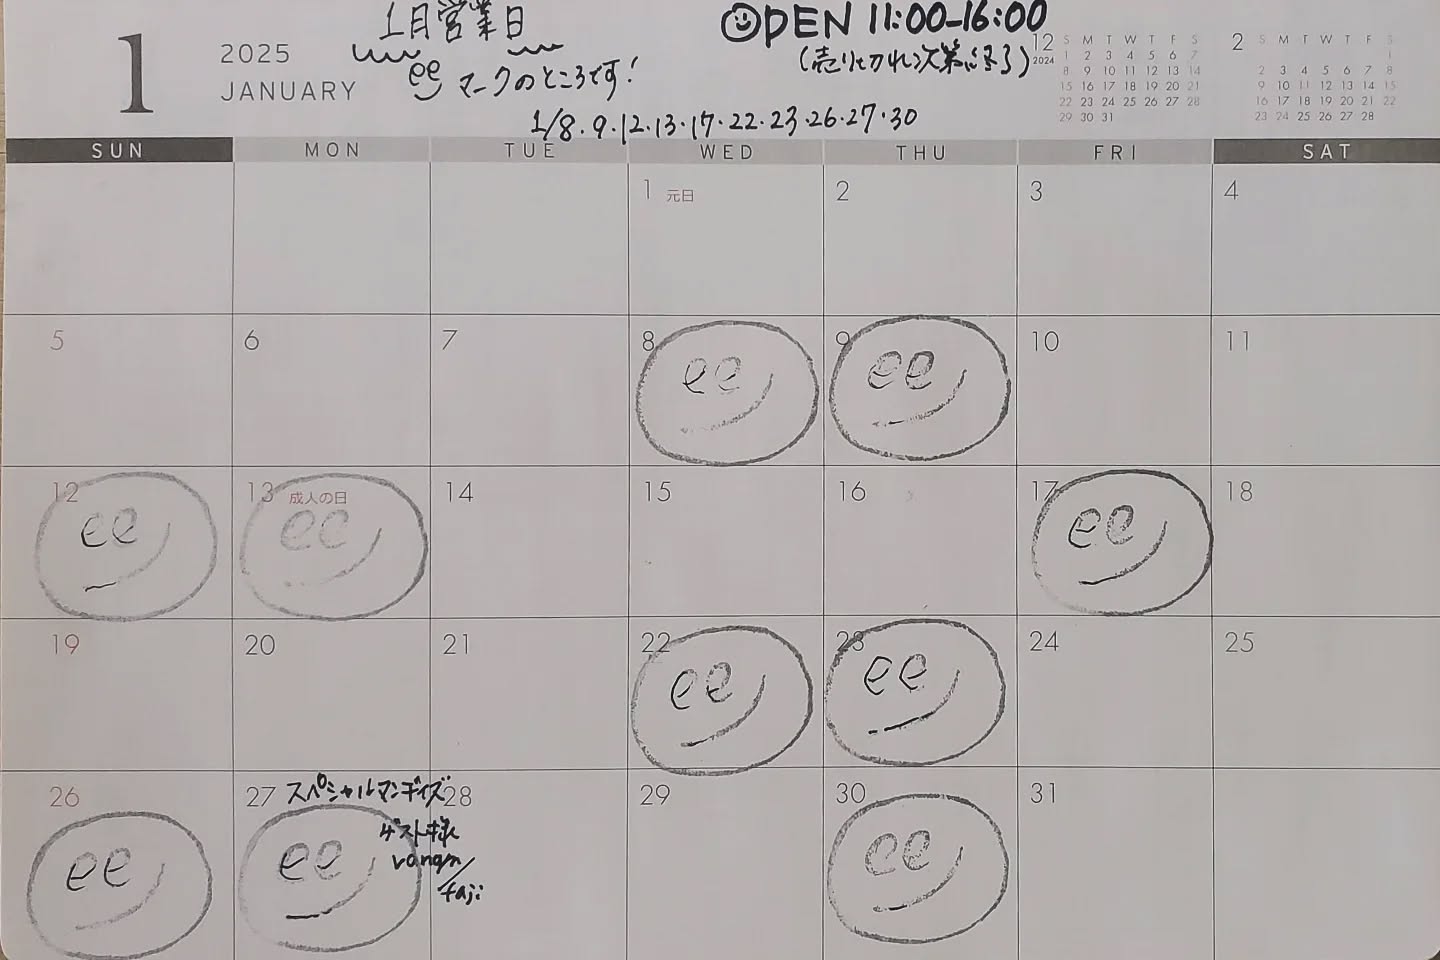 1
2025
JANUARY
1月営業日
ee マークのところです!
OPEN 11:00-16:00
(売り切れ次第終了)
1/8.9.12.13.17.22.23.26.27.30
12
2024
S M T W T F S
1 2 3 4 5 6 7
8 9 10 11 12 13 14
15 16 17 18 19 20 21
22 23 24 25 26 27 28
29 30 31
2
S M T W T F S
1
2 3 4 5 6 7 8
9 10 11 12 13 14 15
16 17 18 19 20 21 22
23 24 25 26 27 28
SUN MON TUE WED THU FRI SAT
1 元日 2 3 4
5 6 7 8 9 10 11
ee ee
12 13 成人の日 14 15 16 17 18
ee ee ee
19 20 21 22 23 24 25
ee ee
26 27 スペシャルマンデイズ 28 29 30 31
ゲスト様
ee ee ee
/
faji